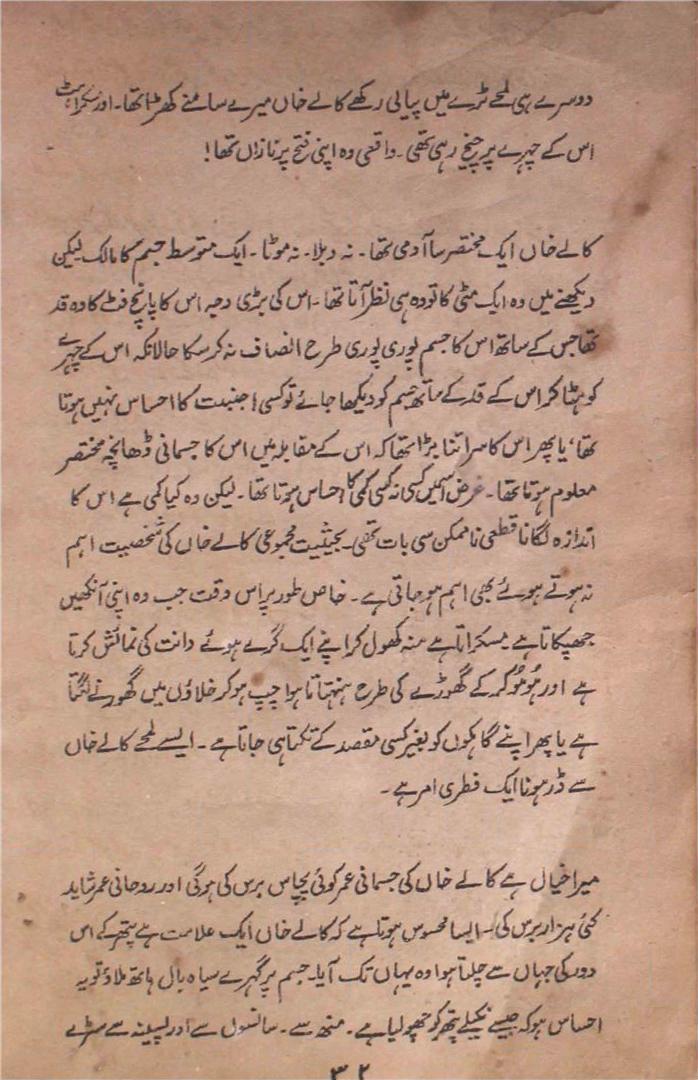 دوسرے ہی لمحے ٹرے میں پیالی رکھے کالے خاں میرے سامنے کھڑا تھا۔ اور مسکراہٹ
اس کے چہرے پر چیخ رہی تھی۔ واقعی وہ اپنی فتح پر نازاں تھا!
کالے خاں ایک مختصر سا آدمی تھا۔ نہ دبلا۔ نہ موٹا۔ ایک متوسط جسم کا مالک لیکن
دیکھنے میں وہ ایک مٹی کا تودہ ہی نظر آتا تھا۔ اس کی بڑی وجہ اس کا پانچ فٹ کا وہ قد
تھا جس کے ساتھ اس کا جسم پوری پوری طرح انصاف نہ کرسکا حالانکہ اس کے چہرے
کو ہٹا کر اس کے قد کے ساتھ جسم کو دیکھا جائے تو کسی اجنبیت کا احساس نہیں ہوتا
تھا، یا پھر اس کا سر اتنا بڑا تھا کہ اس کے مقابلہ میں اس کا جسمانی ڈھانچہ مختصر
معلوم ہوتا تھا۔ غرض اسمیں کسی نہ کسی کمی کا احساس ہوتا تھا۔ لیکن وہ کیا کمی ہے اس کا
اندازہ لگانا قطعی ناممکن سی بات تھی۔ بحیثیت مجموعی کالے خاں کی شخصیت اہم
نہ ہوتے ہوئے بھی اہم ہو جاتی ہے۔ خاص طور پر اس وقت جب وہ اپنی آنکھیں
جھپکاتا ہے مسکراتا ہے منہ کھول کر اپنے ایک گرے ہوئے دانت کی نمائش کرتا
ہے اور ہُو ہُو کر کے گھوڑے کی طرح ہنہناتا ہوا چپ ہو کر خلاؤں میں گھورنے لگتا
ہے یا پھر اپنے گاہکوں کو بغیر کسی مقصد کے تکتا ہی جاتا ہے۔ ایسے لمحے کالے خاں
سے ڈر ہونا ایک فطری امر ہے۔
میرا خیال ہے کالے خاں کی جسمانی عمر کوئی پچاس برس کی ہوگی اور روحانی عمر شاید
کئی ہزار برس کی۔ ایسا محسوس ہوتا ہے کہ کالے خاں ایک علامت ہے پتھر کے اس
دور کی جہاں سے چلتا ہوا وہ یہاں تک آیا۔ جسم پر گہرے سیاہ بال ہاتھ ملاؤ تو یہ
احساس ہو کہ جیسے نکیلے پتھر کو چھو لیا ہے۔ منھ سے۔ سانسوں سے اور پسینہ سے سڑے
۳۲